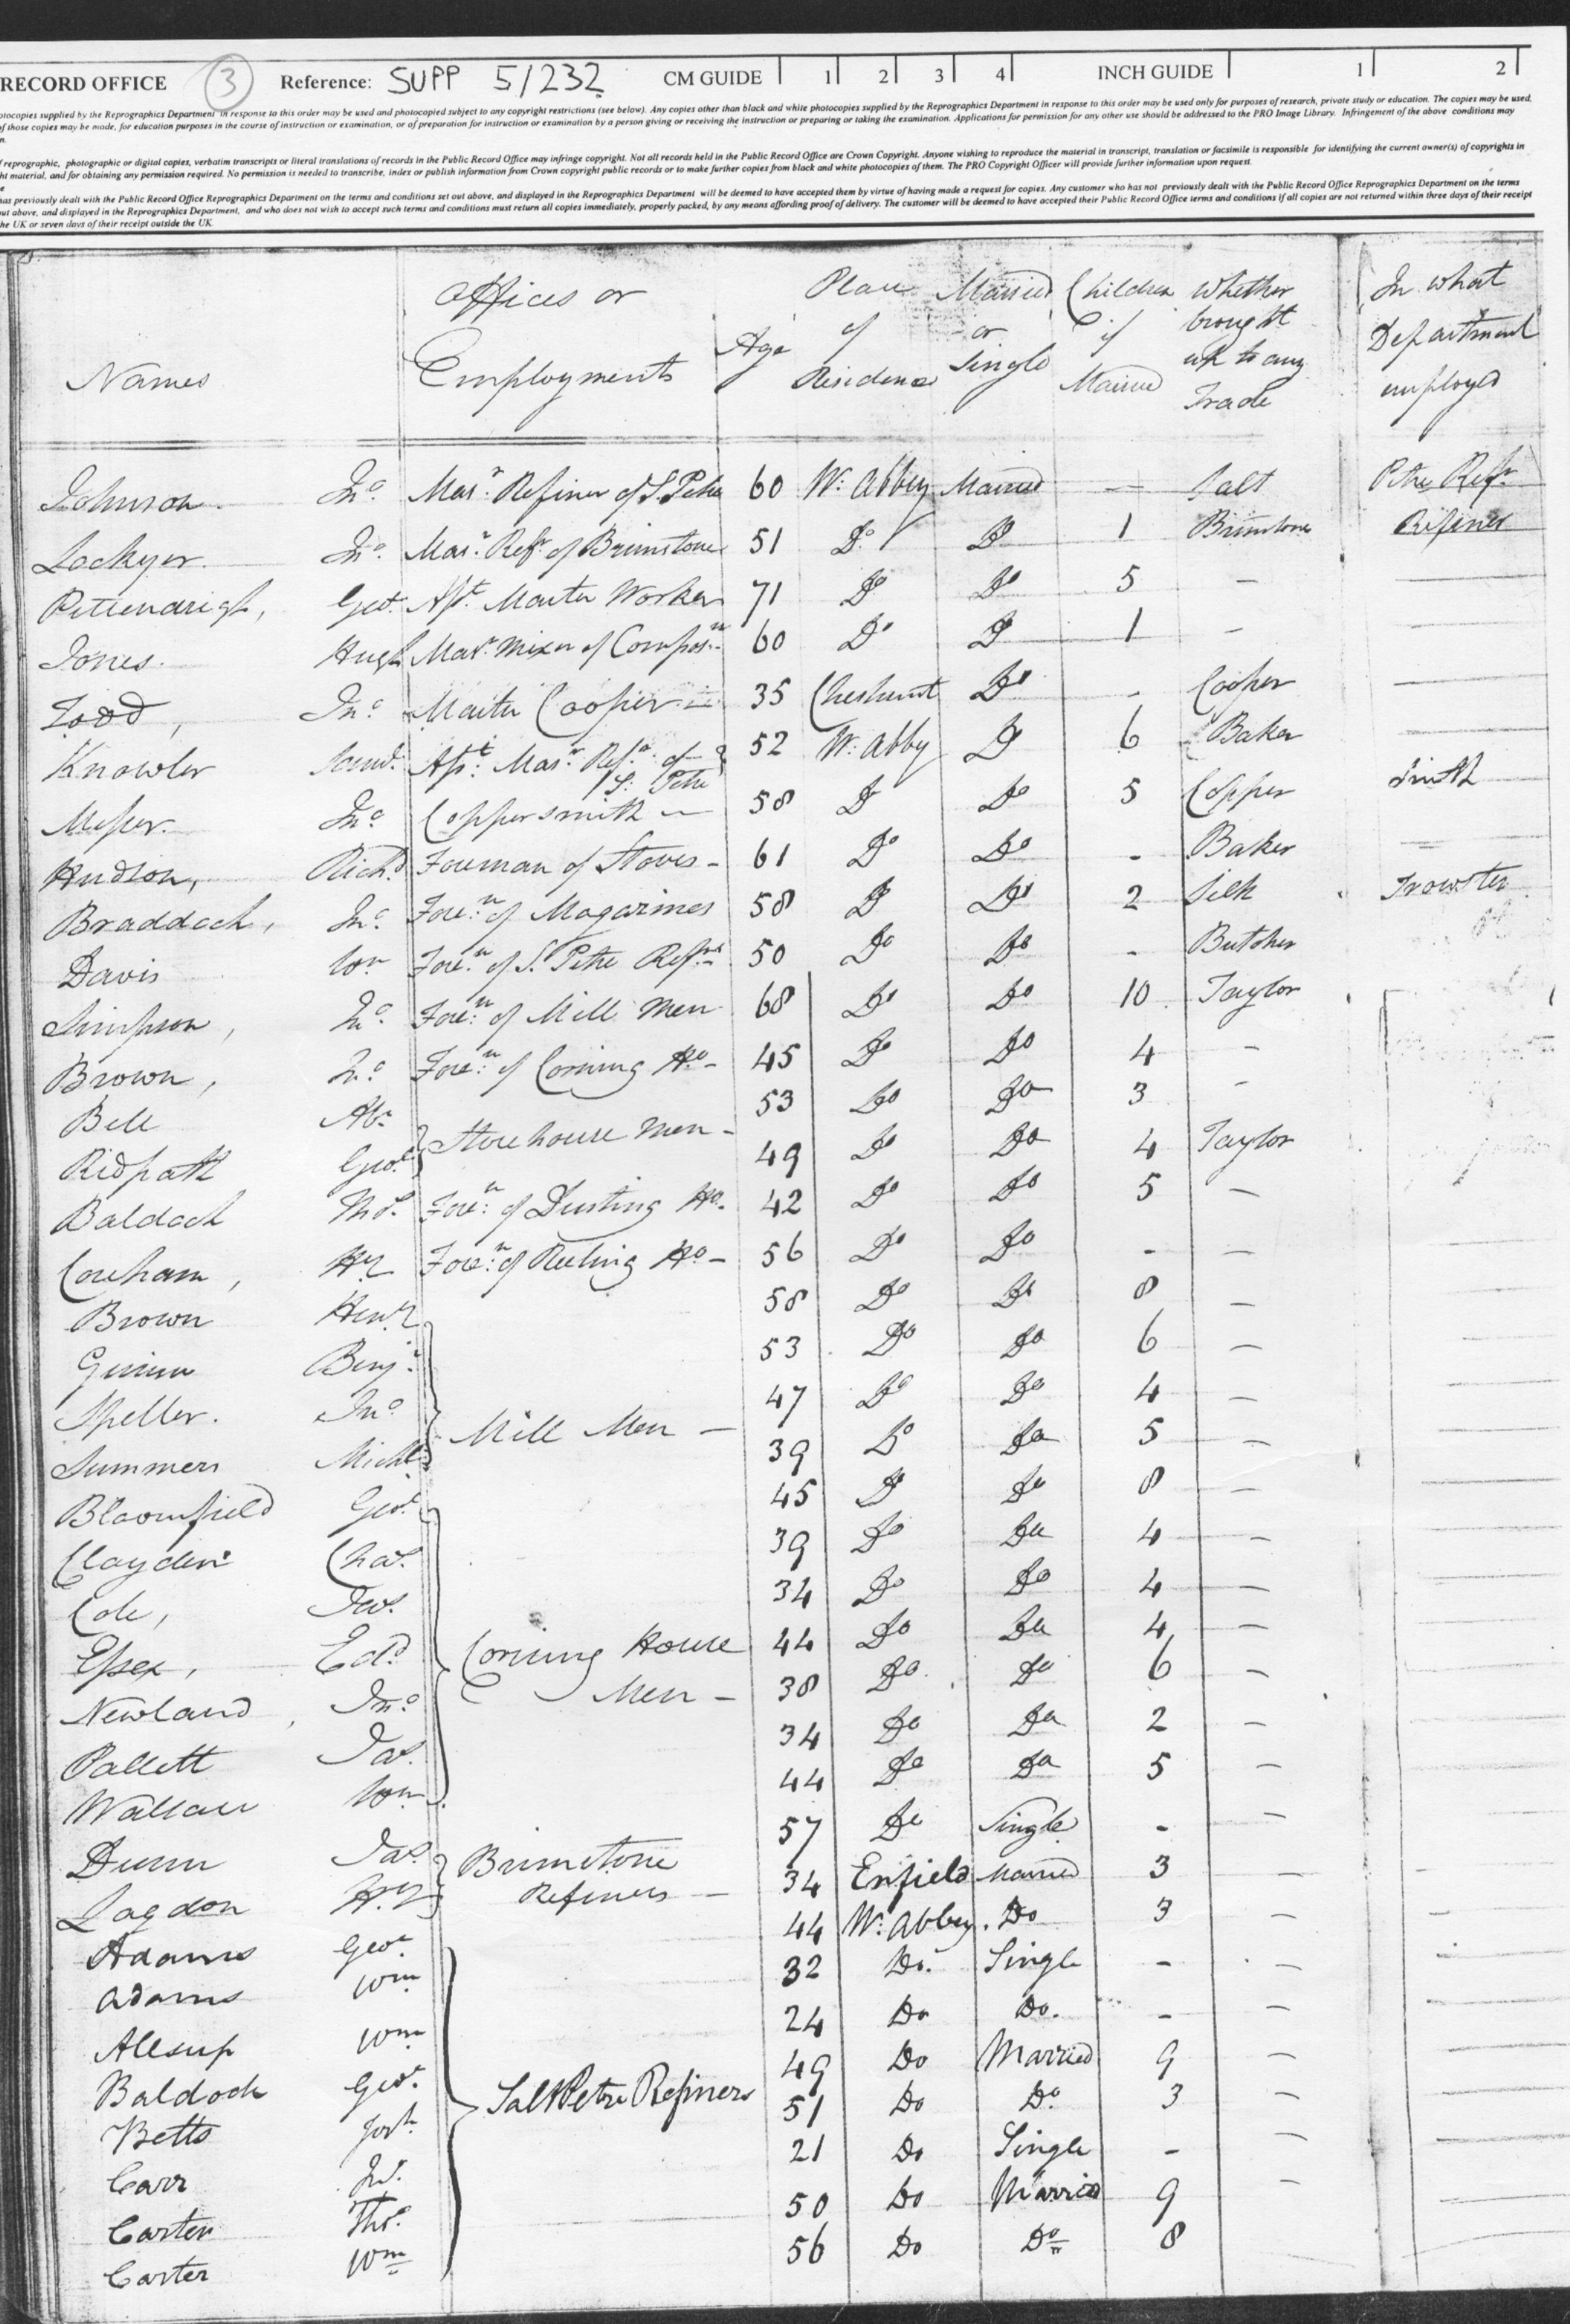 RECORD OFFICE 3 Reference: SUPP 5/232 CM GUIDE 1 2 3 4 INCH GUIDE 1 2
otocopies supplied by the Reprographics Department in response to this order may be used and photocopied subject to any copyright restrictions (see below). Any copies other than black and white photocopies supplied by the Reprographics Department in response to this order may be used only for purposes of research, private study or education. The copies may be used,
of those copies may be made, for education purposes in the course of instruction or examination, or of preparation for instruction or examination by a person giving or receiving the instruction or preparing or taking the examination. Applications for permission for any other use should be addressed to the PRO Image Library. Infringement of the above conditions may
n.
f reprographic, photographic or digital copies, verbatim transcripts or literal translations of records in the Public Record Office may infringe copyright. Not all records held in the Public Record Office are Crown Copyright. Anyone wishing to reproduce the material in transcript, translation or facsimile is responsible for identifying the current owner(s) of copyrights in
ht material, and for obtaining any permission required. No permission is needed to transcribe, index or publish information from Crown copyright public records or to make further copies from black and white photocopies of them. The PRO Copyright Officer will provide further information upon request.
e
has previously dealt with the Public Record Office Reprographics Department on the terms and conditions set out above, and displayed in the Reprographics Department will be deemed to have accepted them by virtue of having made a request for copies. Any customer who has not previously dealt with the Public Record Office Reprographics Department on the terms
out above, and displayed in the Reprographics Department, and who does not wish to accept such terms and conditions must return all copies immediately, properly packed, by any means affording proof of delivery. The customer will be deemed to have accepted their Public Record Office terms and conditions if all copies are not returned within three days of their receipt
the UK or seven days of their receipt outside the UK.
Names
Offices or
Employments
Age
Place
of
Residence
Married
or
Single
Children
if
Married
Whether
brought
up to any
Trade
In what
Department
employed
Johnson Jno. Masr. Refiner of S. Petre 60 W. Abbey Married — Salt Petre Refr.
Lockyer Jno. Masr. Refr. of Brimstone 51 Do. Do 1 Brimstone Refiner
Pettendrigh, Geo. Asst. Master Worker 71 Do Do 5 —
Jones Hugh Masr. Mixer of Composn. 60 Do Do 1 —
Todd, Jno. Master Cooper — 35 Cheshunt Do - Cooper —
Knowler Saml. Asst. Masr. Refr. of S. Petre 52 W. Abby Do 6 Baker —
Messer Jno. Coppersmith — 58 Do Do 5 Copper Smith
Hudson, Richd. Foreman of Stoves - 61 Do Do - Baker —
Braddock, Jno. Foren. of Magazines 58 Do Do 2 Silk Trowster
Davis Wm Foren. of S. Petre Refrs 50 Do Do - Butcher
Simpson, Jno. Foren. of Mill Men 68 Do Do 10 Taylor
Brown, Jno. Foren. of Corning Ho - 45 Do Do 4 —
Bell Abr. } Storehouse Men - 53 Do Do 3 —
Ridpath Geo. 49 Do Do 4 Taylor
Baldock Thos. Foren. of Dusting Ho. 42 Do Do 5 —
Coreham, Hy Foren. of Reeling Ho - 56 Do Do - —
Brown Heny 58 Do Do 8 —
Benj. 53 Do Do 6 —
Speller. Jno. 47 Do Do 4 —
Summers Michl. } Mill Men — 39 Do Do 5 —
Bloomfield Geo. 45 Do Do 8 —
Clayden Chas. 39 Do Do 4 —
Cole, Jas. 34 Do Do 4 —
Essex, Edd. } Corning House 44 Do Do 4 —
Newland, Jno. Men - 38 Do Do 6 —
Pallett Jas. 34 Do Do 2 —
Wallace Wm 44 Do Do 5 —
Dunn Jas. } Brimstone 57 Do Single - —
Lagdon Hy Refiners — 34 Enfield Married 3 —
Adams Geo. 44 W. Abbey. Do 3 —
Adams Wm 32 Do. Single - —
Allsup Wm 24 Do Do. - —
Baldock Geo. 49 Do Married 9 —
Betts Josh. } SaltPetre Refiners 51 Do Do. 3 —
Carr 21 Do Single - —
Carter Thos. 50 Do Married 9 —
Carter Wm 56 Do Do 8